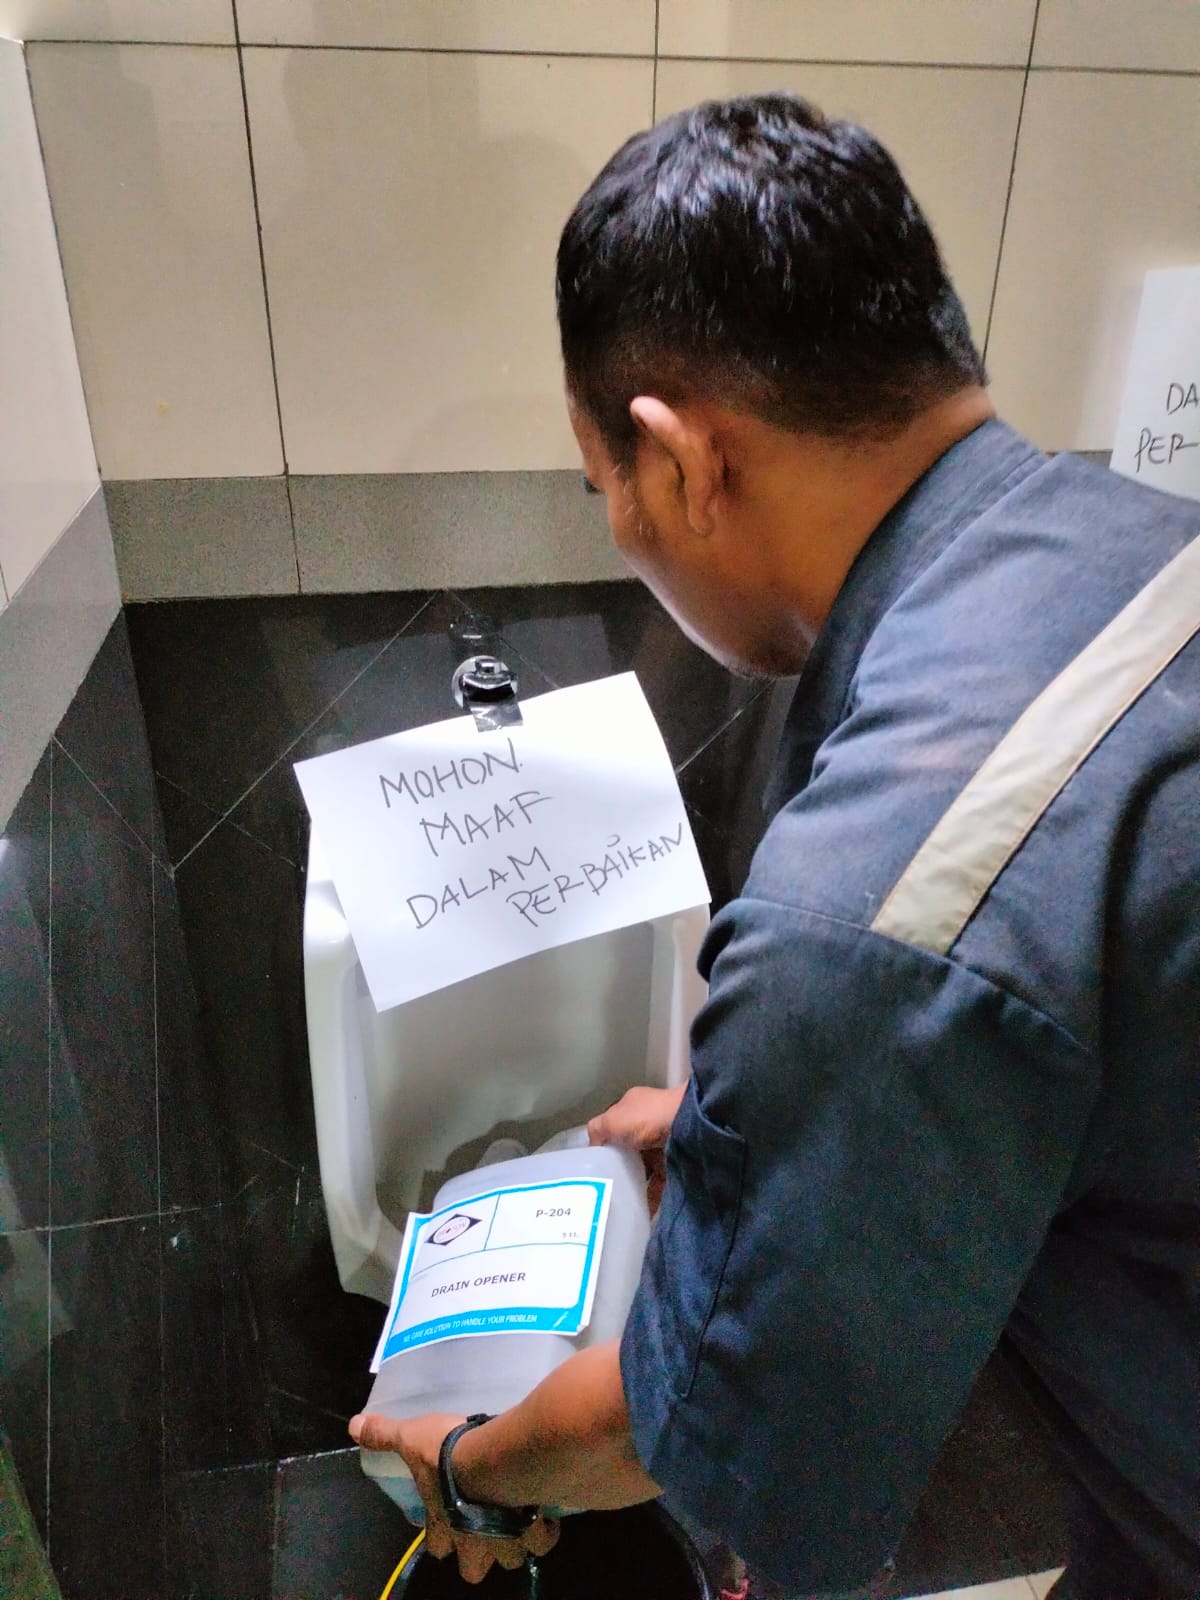 MOHON.
MAAF
DALAM
PERBAIKAN
DA
PER
P-204
5 Lt.
DRAIN OPENER
WE GIVE SOLUTION TO HANDLE YOUR PROBLEM